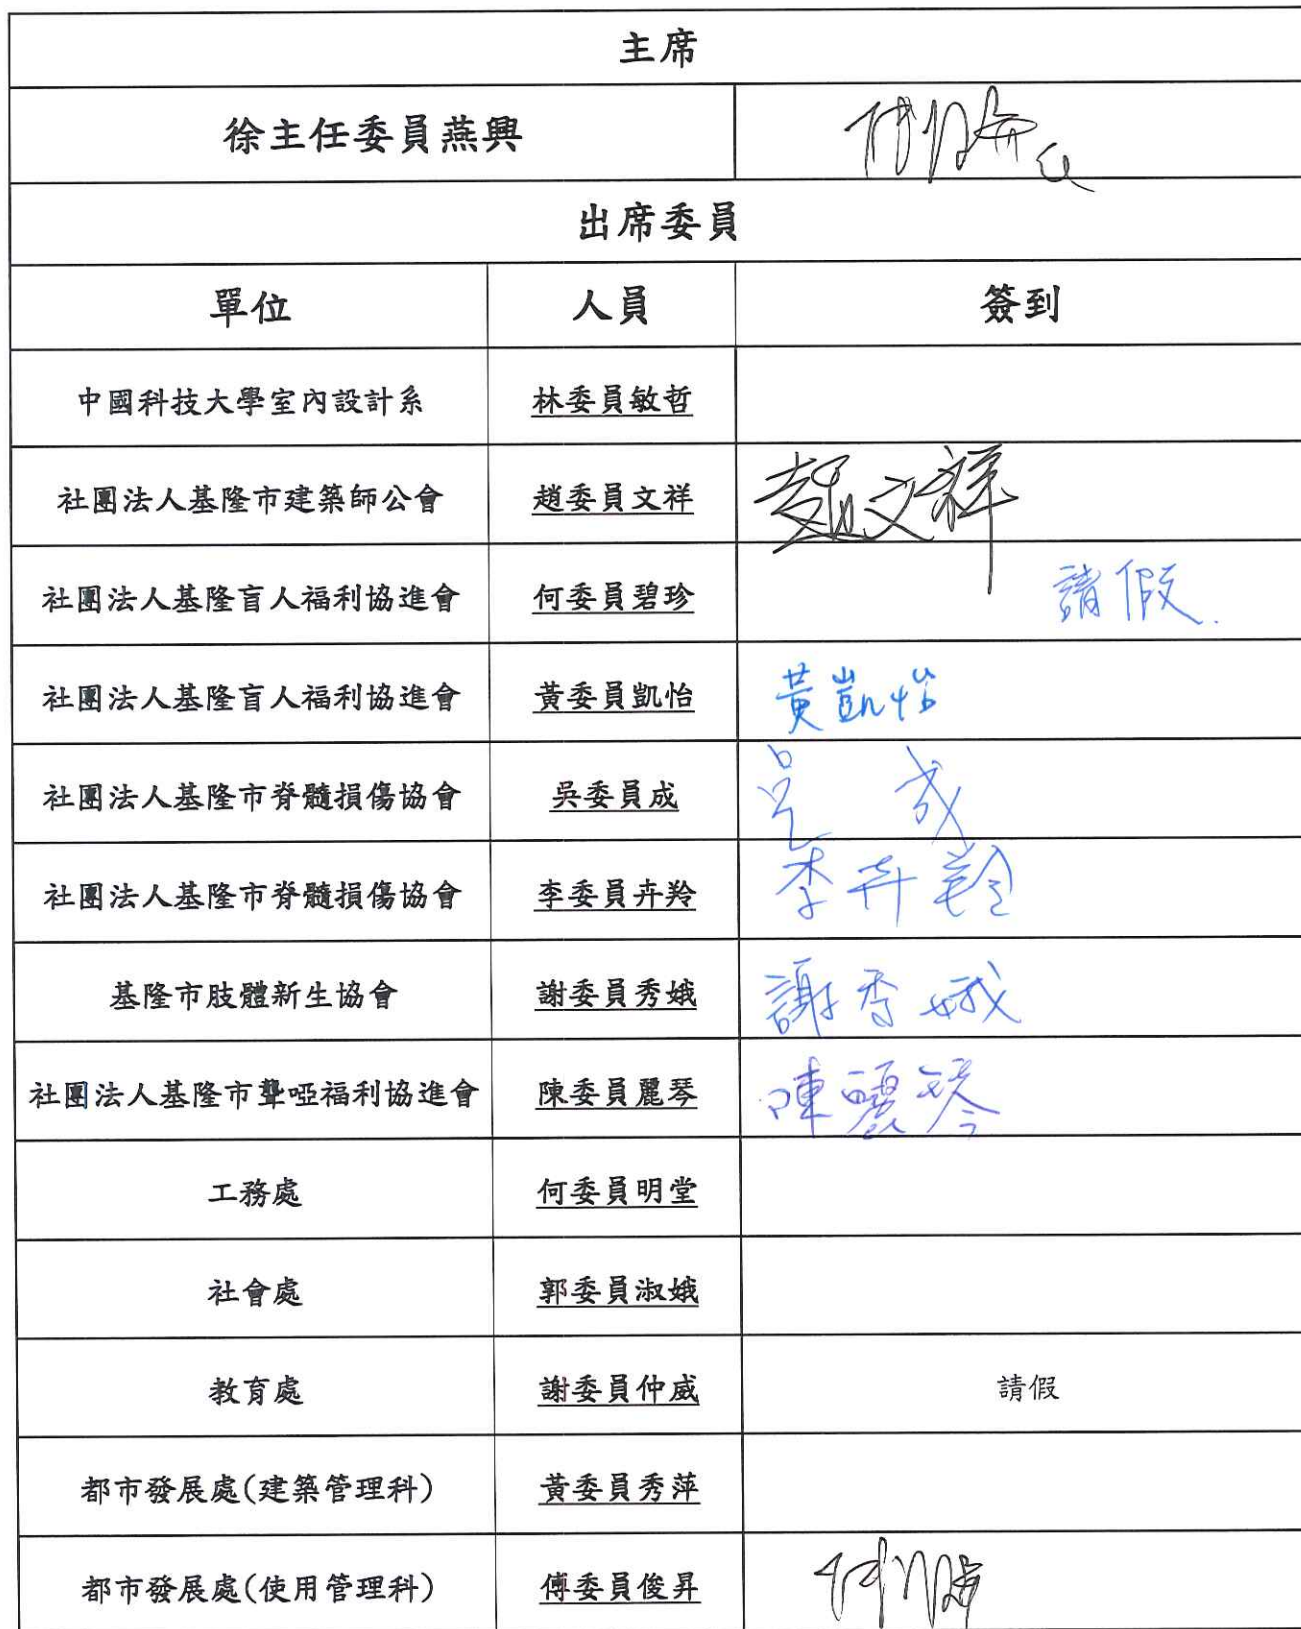 主席
徐主任委員燕興
出席委員
單位 人員 簽到
中國科技大學室內設計系 林委員敏哲
社團法人基隆市建築師公會 趙委員文祥 趙文祥
社團法人基隆盲人福利協進會 何委員碧珍 請假
社團法人基隆盲人福利協進會 黃委員凱怡 黃凱怡
社團法人基隆市脊髓損傷協會 吳委員成 吳成
社團法人基隆市脊髓損傷協會 李委員卉羚 李卉羚
基隆市肢體新生協會 謝委員秀娥 謝秀娥
社團法人基隆市聾啞福利協進會 陳委員麗琴 陳麗琴
工務處 何委員明堂
社會處 郭委員淑娥
教育處 謝委員仲威 請假
都市發展處(建築管理科) 黃委員秀萍
都市發展處(使用管理科) 傅委員俊昇